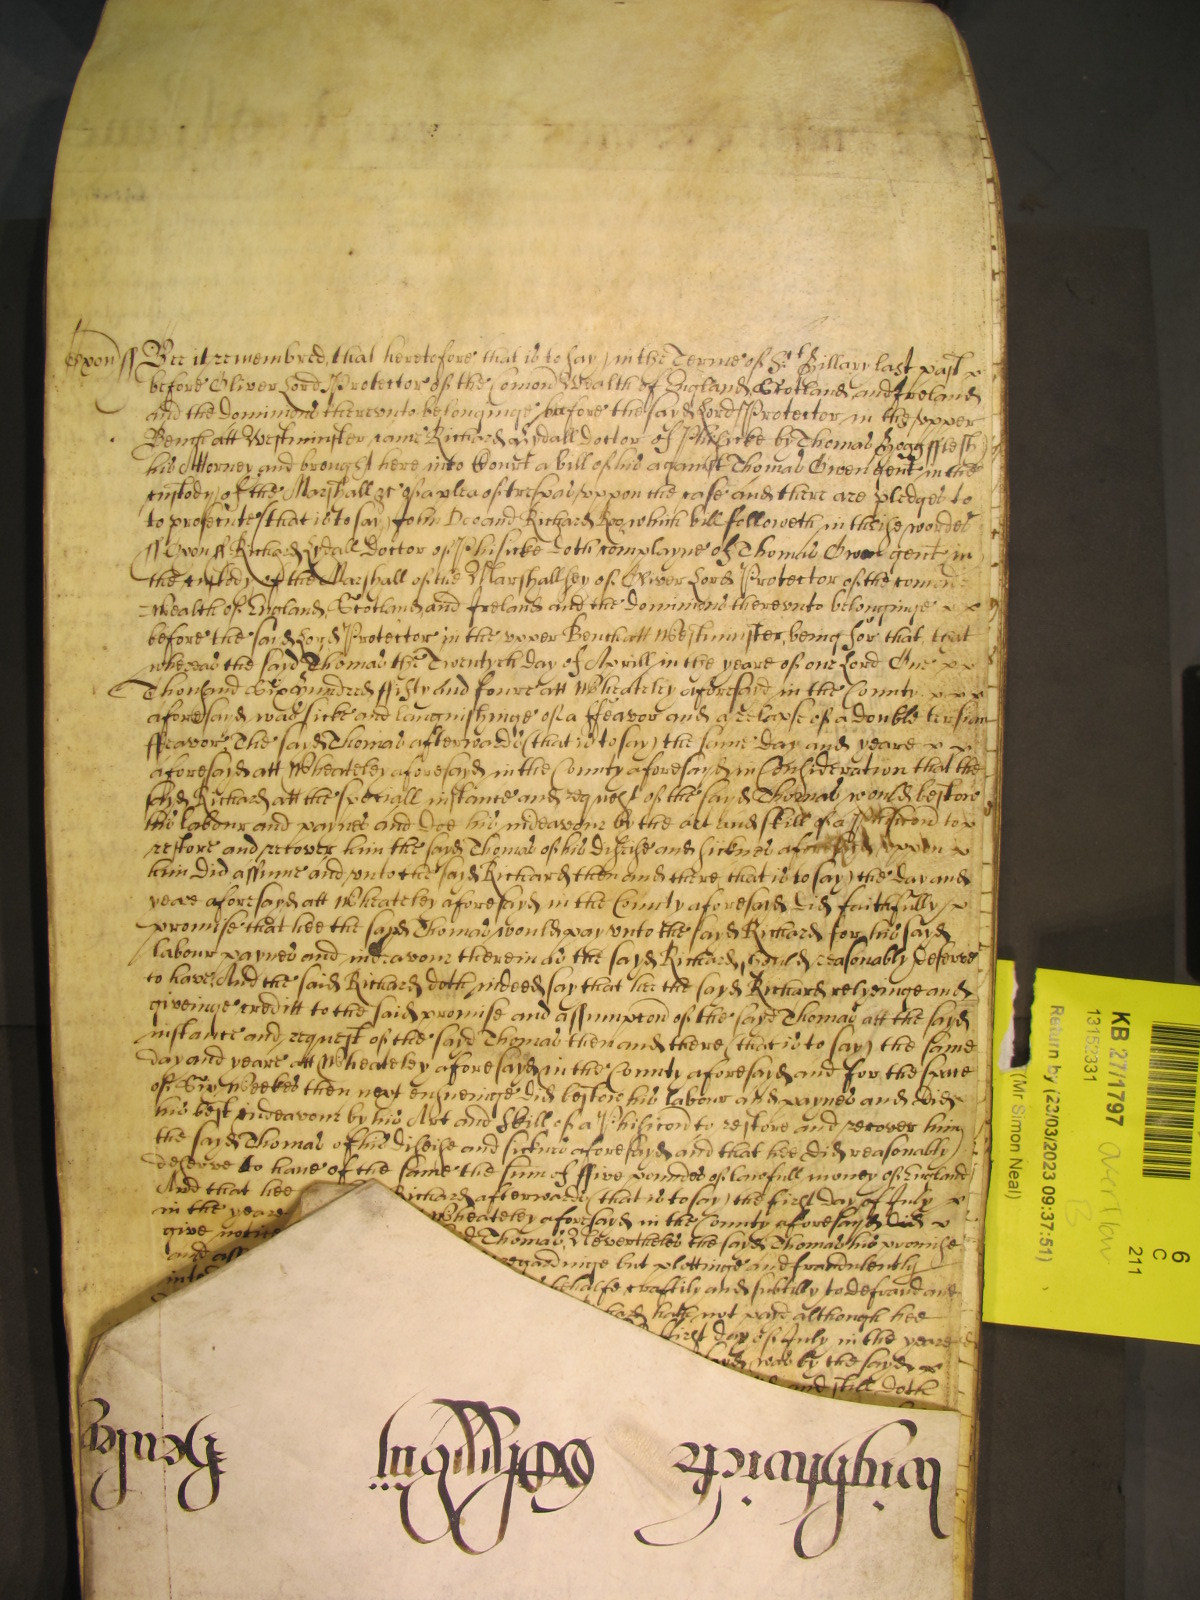 Oxon ss Bee it remembred, that heretofore that is to say, in the Terme of St Hillary last past
before Oliver Lord Protector of the Comon Wealth of England, Scotland, and Ireland
and the Dominions thereunto belonginge before the sayd Lord Protector in the upper
Bench att Westminster, came Richard Lydall Doctor of Phisicke by Thomas
his Attorney and brought here into Court a bill of his against Thomas Owen gent in the
custody of the Marshall &c of a plea of trespas uppon the case and there are pledges to
to prosecute that is to say John Doo and Richard Roo, which bill followeth in theise wordes
ss Oxon ss Richard Lydall Doctor of Phisicke doth complayne of Thomas Owen gent in
the custody of the Marshall of the Marshallsey of Oliver Lord Protector of the comon
wealth of England, Scotland, and Ireland and the Dominions thereunto belonginge
before the said Lord Protector in the upper Bench att Westminster, being for that, that
whereas the sayd Thomas the Twentyeth day of Aprill in the yeare of our Lord One
Thousand Six hundred fifty and foure att Wheateley aforesayd in the County
aforesayd, was sicke and languishinge of a ffeavor and a relapse of a double tertian
ffeavor, The sayd Thomas afterwards (that is to say) the same day and yeare
aforesayd att Wheateley aforesayd in the County aforesayd in Consideration that the
sayd Richard att the speciall instance and request of the sayd Thomas would bestow
his labour and paynes and doe his indeavour by the art and skill of a Phisicon to
restore and recover him the sayd Thomas of his disease and sicknes aforesayd, uppon
him did assume and unto the sayd Richard then and there that is to say) the day and
yeare aforesayd att Wheateley aforesayd in the County aforesayd did faithfully
promise that hee the sayd Thomas would pay unto the sayd Richard for his sayd
labour paynes and indeavour therein as the sayd Richard should reasonably deserve
to have, And the said Richard doth indeed say that hee the sayd Richard relyeinge and
giveinge creditt to the said promise and assumpcon of the sayd Thomas att the sayd
instance and request of the sayd Thomas then and there (that is to say) the same
day and yeare att Wheateley aforesayd in the County aforesayd and for the space
of Six Weekes then next ensueinge did bestow his labour and paynes and did
his best indeavour by his Art and skill of a Phisicon to restore and recover him
the sayd Thomas of his disease and sicknes aforesayd and that hee did reasonably
deserve to have of the same the sum of ffive poundes of lawfull money of England
And that hee Richard afterwards (that is to say) the first day of July
in the yeare Wheateley aforesayd in the County aforesayd did
give notice Thomas, Neverthelес the sayd Thomas his promise
and ass regardinge but plottinge and fraudulently
inte behalfe, craftily and subtilly to defraud and
hath not paid although hee
first day of July in the yeare
sayd, was by the sayd
and still doth
lwightwicke
Henley
KB 27/1797
13152331
Return by (23/03/2023 09:37:51)
(Mr Simon Neal)
overflow
B
6
C
211